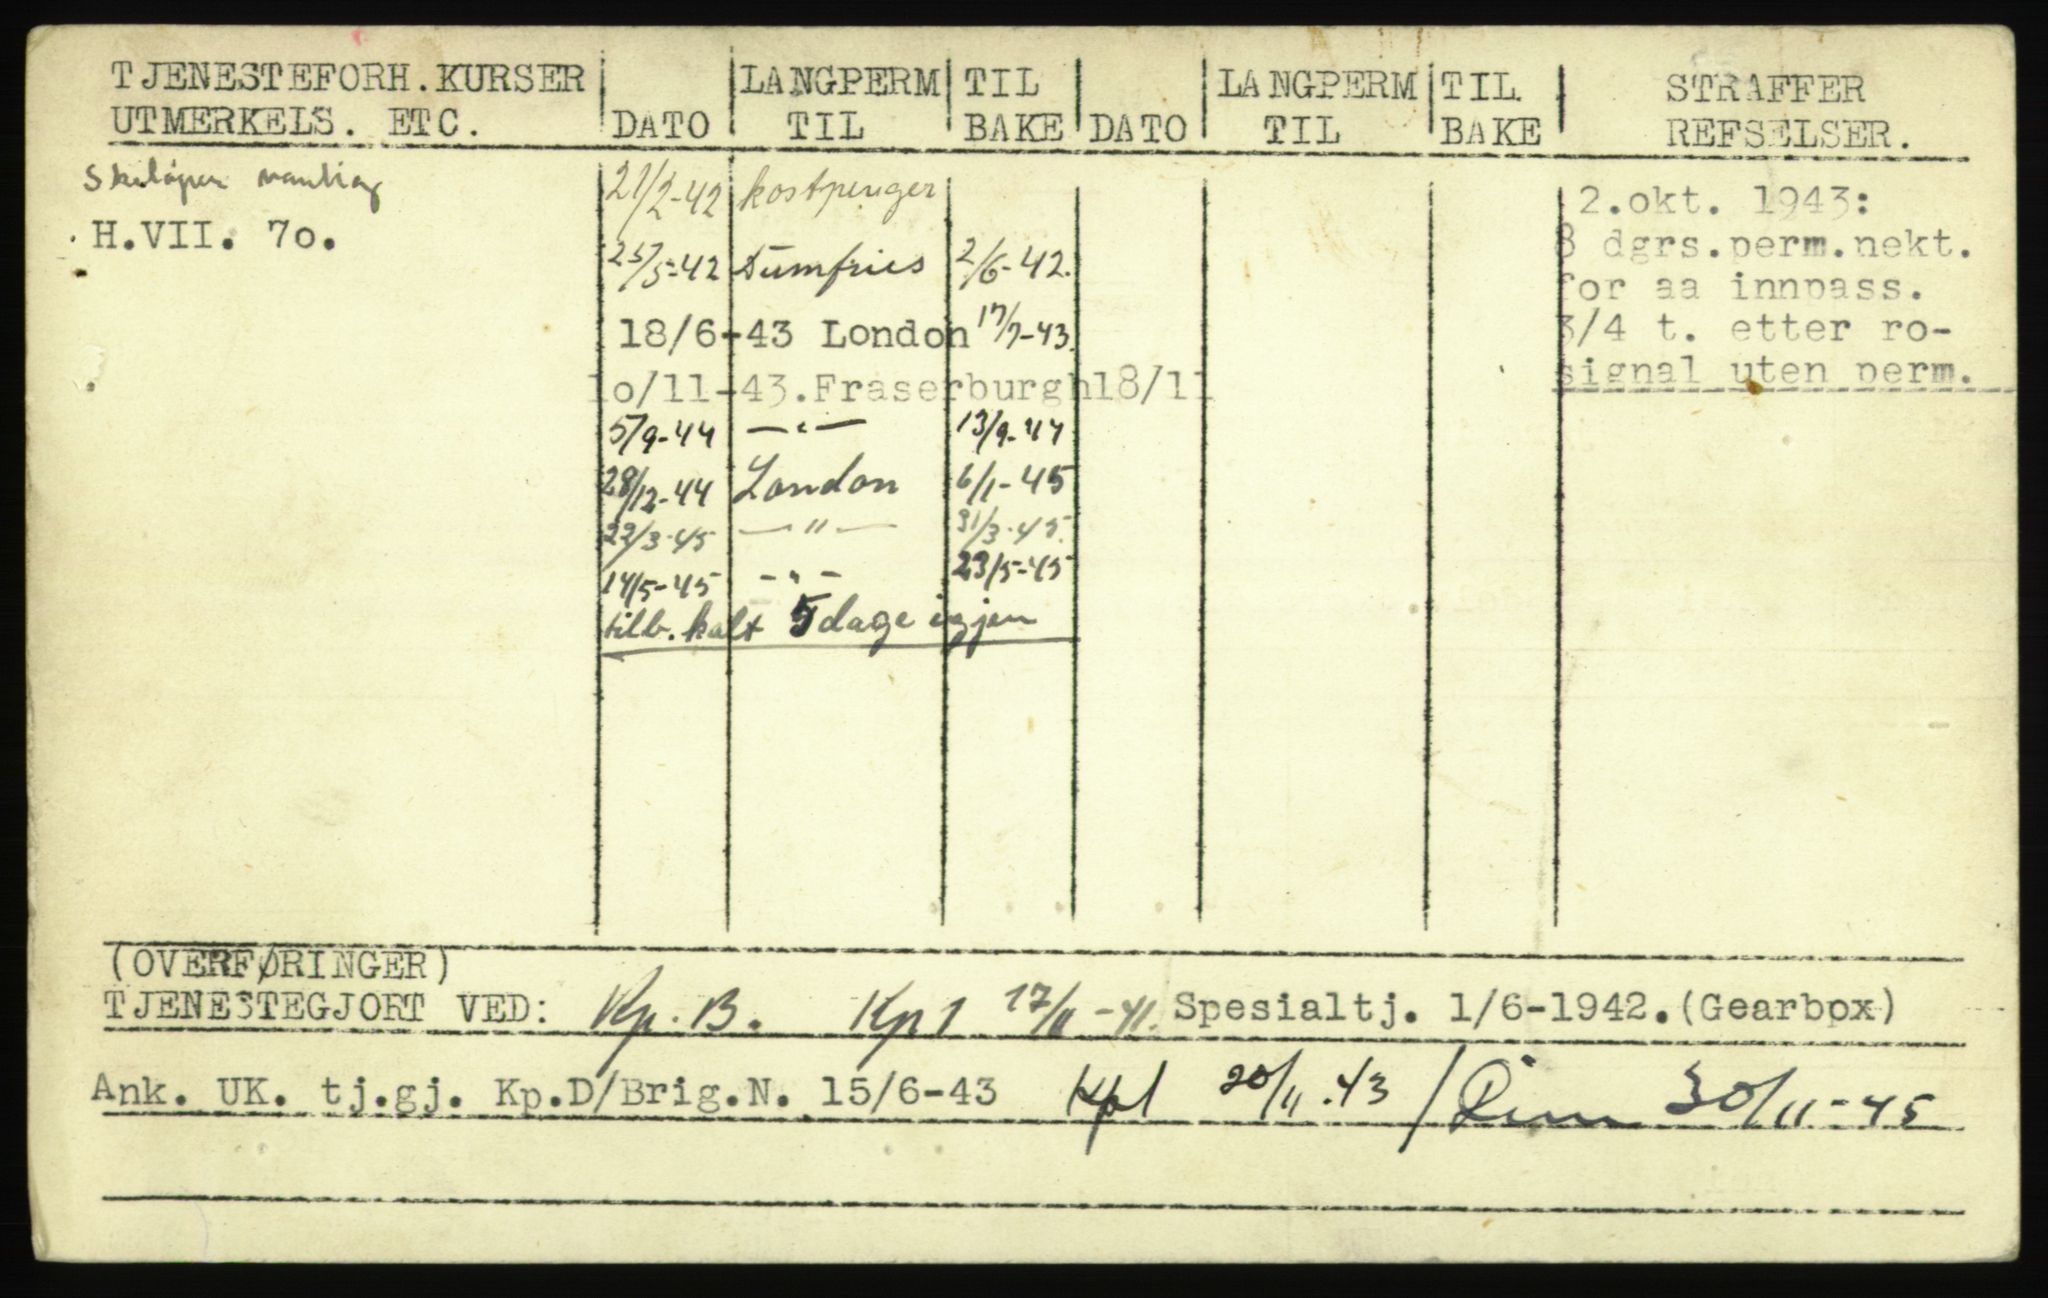 TJENESTEFORH.KURSER UTMERKELS. ETC.
DATO
LANGPERM TIL
TIL BAKE
DATO
LANGPERM TIL
TIL BAKE
STRAFFER REFSELSER.
Skiløper
H.VII. 7o.
21/2-42 kostpenger
25/5-42 Dumfries 2/6-42.
18/6-43 London 17/7-43.
lo/11-43.Fraserburgh18/11
5/9-44 —"— 13/9-44
28/12-44 London 6/1-45
22/3-45 —"— 31/3-45.
14/5-45 -"- 23/5-45
tilb. kalt 5 dage igjen
2.okt. 1943:
8 dgrs.perm.nekt.
for aa innpass.
3/4 t. etter ro-
signal uten perm.
(OVERFØRINGER)
TJENESTEGJORT VED: Kp. B. Kp 1 17/11-41. Spesialtj. 1/6-1942.(Gearbox)
Ank. UK. tj.gj. Kp.D/Brig.N. 15/6-43 Kp1 20/11.43 / Dim 30/11-45